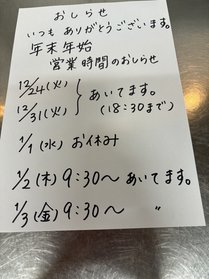 おしらせ
いつもありがとうございます。
年末年始
営業時間のおしらせ
12/24(火)
12/31(火)
} あいてます。
(18:30まで)
1/1(水) お休み
1/2(木) 9:30〜 あいてます。
1/3(金) 9:30〜 〃